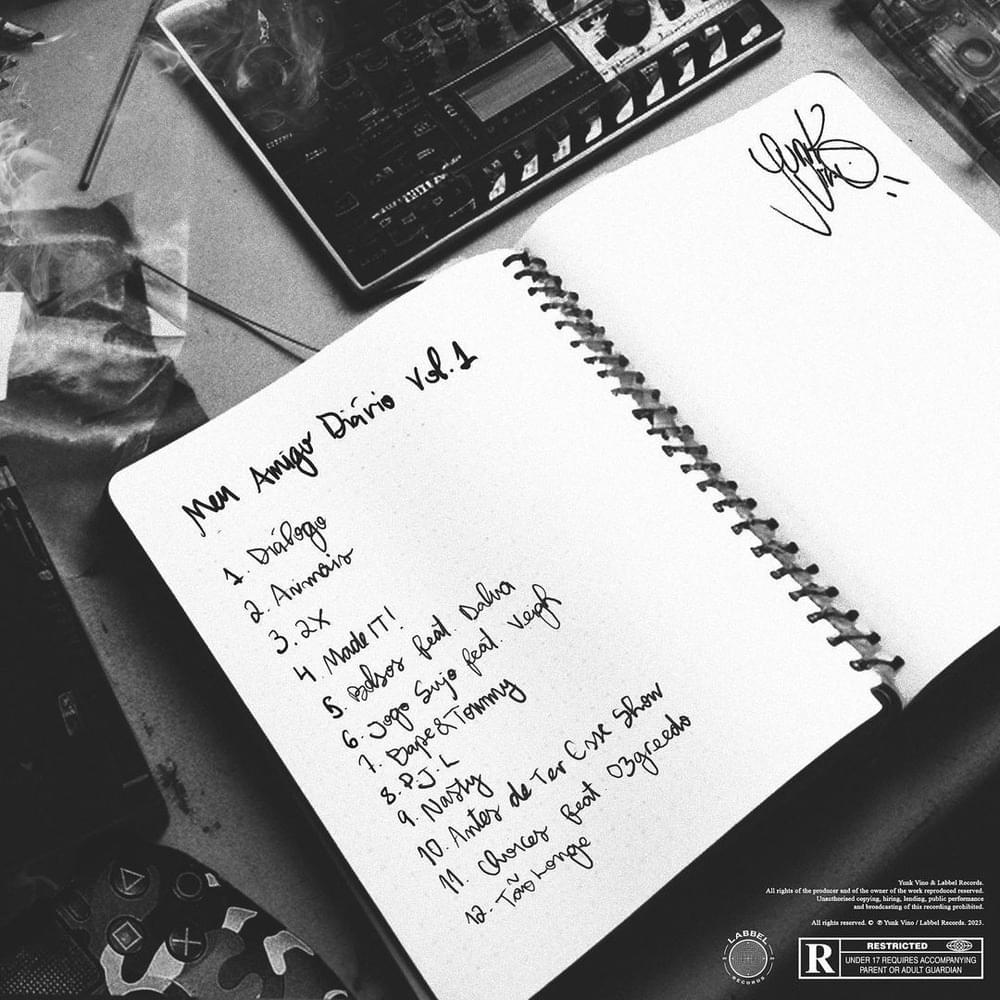 Yunk
Vino
Meu Amigo Diário Vol.1
1. Diálogo
2. Animais
3. 2x
4. Made IT!
5. Bolsos feat Dalua
6. Jogo Sujo feat. Veigh
7. Bape & Tommy
8. P.J.L
9. Nasty
10. Antes de Ter Esse Show
11. Choices feat. 03greedo
12. Tão Longe
Yunk Vino & Labbel Records.
All rights of the producer and of the owner of the work reproduced reserved.
Unauthorised copying, hiring, lending, public performance
and broadcasting of this recording prohibited.
All rights reserved. © ℗ Yunk Vino / Labbel Records. 2023.
LABBEL
RECORDS
R
RESTRICTED
UNDER 17 REQUIRES ACCOMPANYING
PARENT OR ADULT GUARDIAN